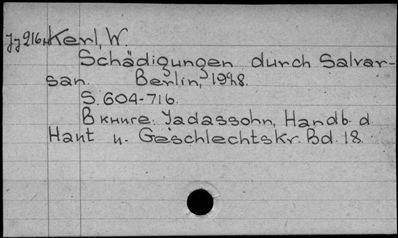 Jj 216 Kerl, W.
Schädigungen durch Salvar-
san. Berlin, 1928.
S. 604-716.
В книге: Jadassohn, Handb. d.
Haut u. Geschlechtskr. Bd. 18.